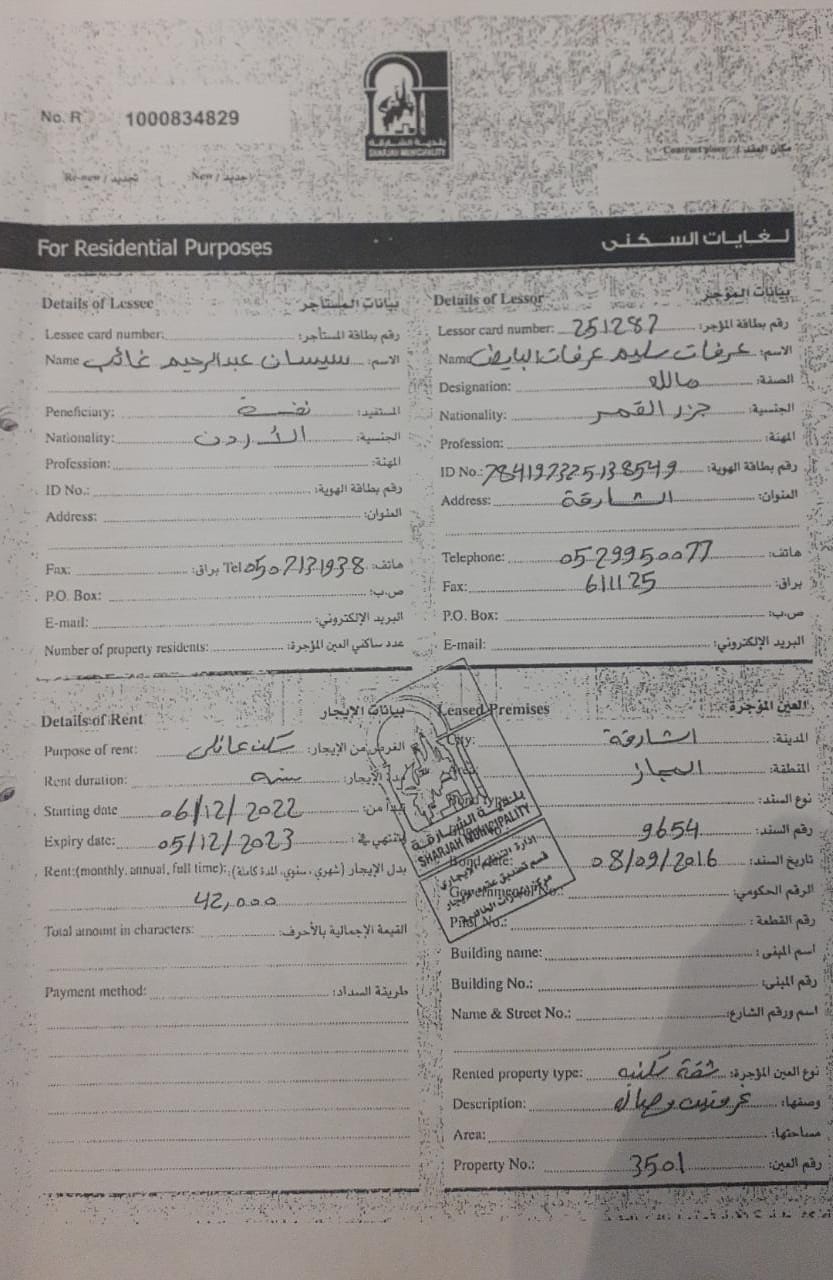 بلدية الشارقة
SHARJAH MUNICIPALITY
No. R 1000834829
Contract place / مكان العقد
Re-new / تجديد New / جديد
For Residential Purposes لغايات السكنى
Details of Lessee بيانات المستأجر
Lessee card number: رقم بطاقة المستأجر:
Name عبدالرحيم الاسم:
Peneficiary: نفسة المستفيد:
Nationality: الأردن الجنسية:
Profession: المهنة:
ID No.: رقم بطاقة الهوية:
Address: العنوان:
Fax: براق: Tel 050 7131938 هاتف:
P.O. Box: ص.ب:
E-mail: البريد الإلكتروني:
Number of property residents: عدد ساكني العين المؤجرة:
Details of Lessor بيانات المؤجر
Lessor card number: 251287 رقم بطاقة المؤجر:
Name عرفات سليم عرفات الاسم:
Designation: مالك الصفة:
Nationality: جزر القمر الجنسية:
Profession: المهنة:
ID No.: 784197325138549 رقم بطاقة الهوية:
Address: الشارقة العنوان:
Telephone: 0529950077 هاتف:
Fax: 611125 براق:
P.O. Box: ص.ب:
E-mail: البريد الإلكتروني:
Details of Rent بيانات الإيجار
Purpose of rent: سكن عائلي الغرض من الإيجار:
Rent duration: سنه الإيجار:
Starting date 06/12/2022 تبدأ من:
Expiry date: 05/12/2023 تنتهي في:
Rent:(monthly, annual, full time): بدل الإيجار (شهري، سنوي، المدة كاملة):
42,000
Total amount in characters: القيمة الإجمالية بالأحرف:
Payment method: طريقة السداد:
Leased Premises العين المؤجرة
City: الشارقة المدينة:
المجاز المنطقة:
نوع السند:
9654 رقم السند:
Bond date: 08/09/2016 تاريخ السند:
Government No.: الرقم الحكومي:
Plot No.: رقم القطعة:
Building name: اسم المبنى:
Building No.: رقم المبنى:
Name & Street No.: اسم ورقم الشارع:
Rented property type: شقة سكنيه نوع العين المؤجرة:
Description: غرفتين وصاله وصفها:
Area: مساحتها:
Property No.: 3501 رقم العين:
بلدية الشارقة
SHARJAH MUNICIPALITY
قسم تصديق عقود الإيجار